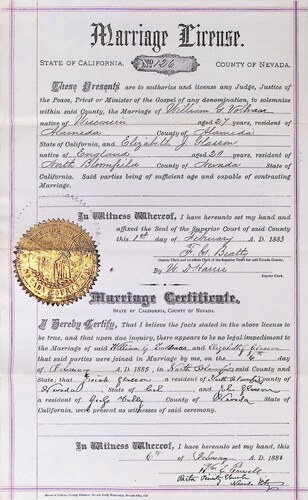 Marriage License.
STATE OF CALIFORNIA, No. 126 COUNTY OF NEVADA.
These Presents are to authorize and license any Judge, Justice of
the Peace, Priest or Minister of the Gospel of any denomination, to solemnize
within said County, the Marriage of William G.
native of Wisconsin aged 27 years, resident of
Alameda County of Alameda
State of California, and Elizabeth J. Glasson
native of England aged 20 years, resident of
North Bloomfield County of Nevada State of
California. Said parties being of sufficient age and capable of contracting
Marriage.
In Witness Whereof, I have hereunto set my hand and
affixed the Seal of the Superior Court of said County
this 1st day of February A. D. 1885
F. G. Beatty
County Clerk and ex-officio Clerk of the Superior Court of said Nevada County.
By W. D. Harris
Deputy Clerk.
Marriage Certificate.
STATE OF CALIFORNIA, COUNTY OF NEVADA.
I Hereby Certify, That I believe the facts stated in the above license
to be true, and that upon due inquiry, there appears to be no legal impediment to
the Marriage of said William G. and Elizabeth Glasson
that said parties were joined in Marriage by me, on the day
of February A. D. 1885, in North Bloomfield County and
State; that Josiah Glasson a resident of North Bloomfield County of
Nevada State of Cal and John Glasson
a resident of Valley County of Nevada State of
California, were present as witnesses of said ceremony.
In Witness Whereof, I have hereunto set my hand this
6th February A. D. 188